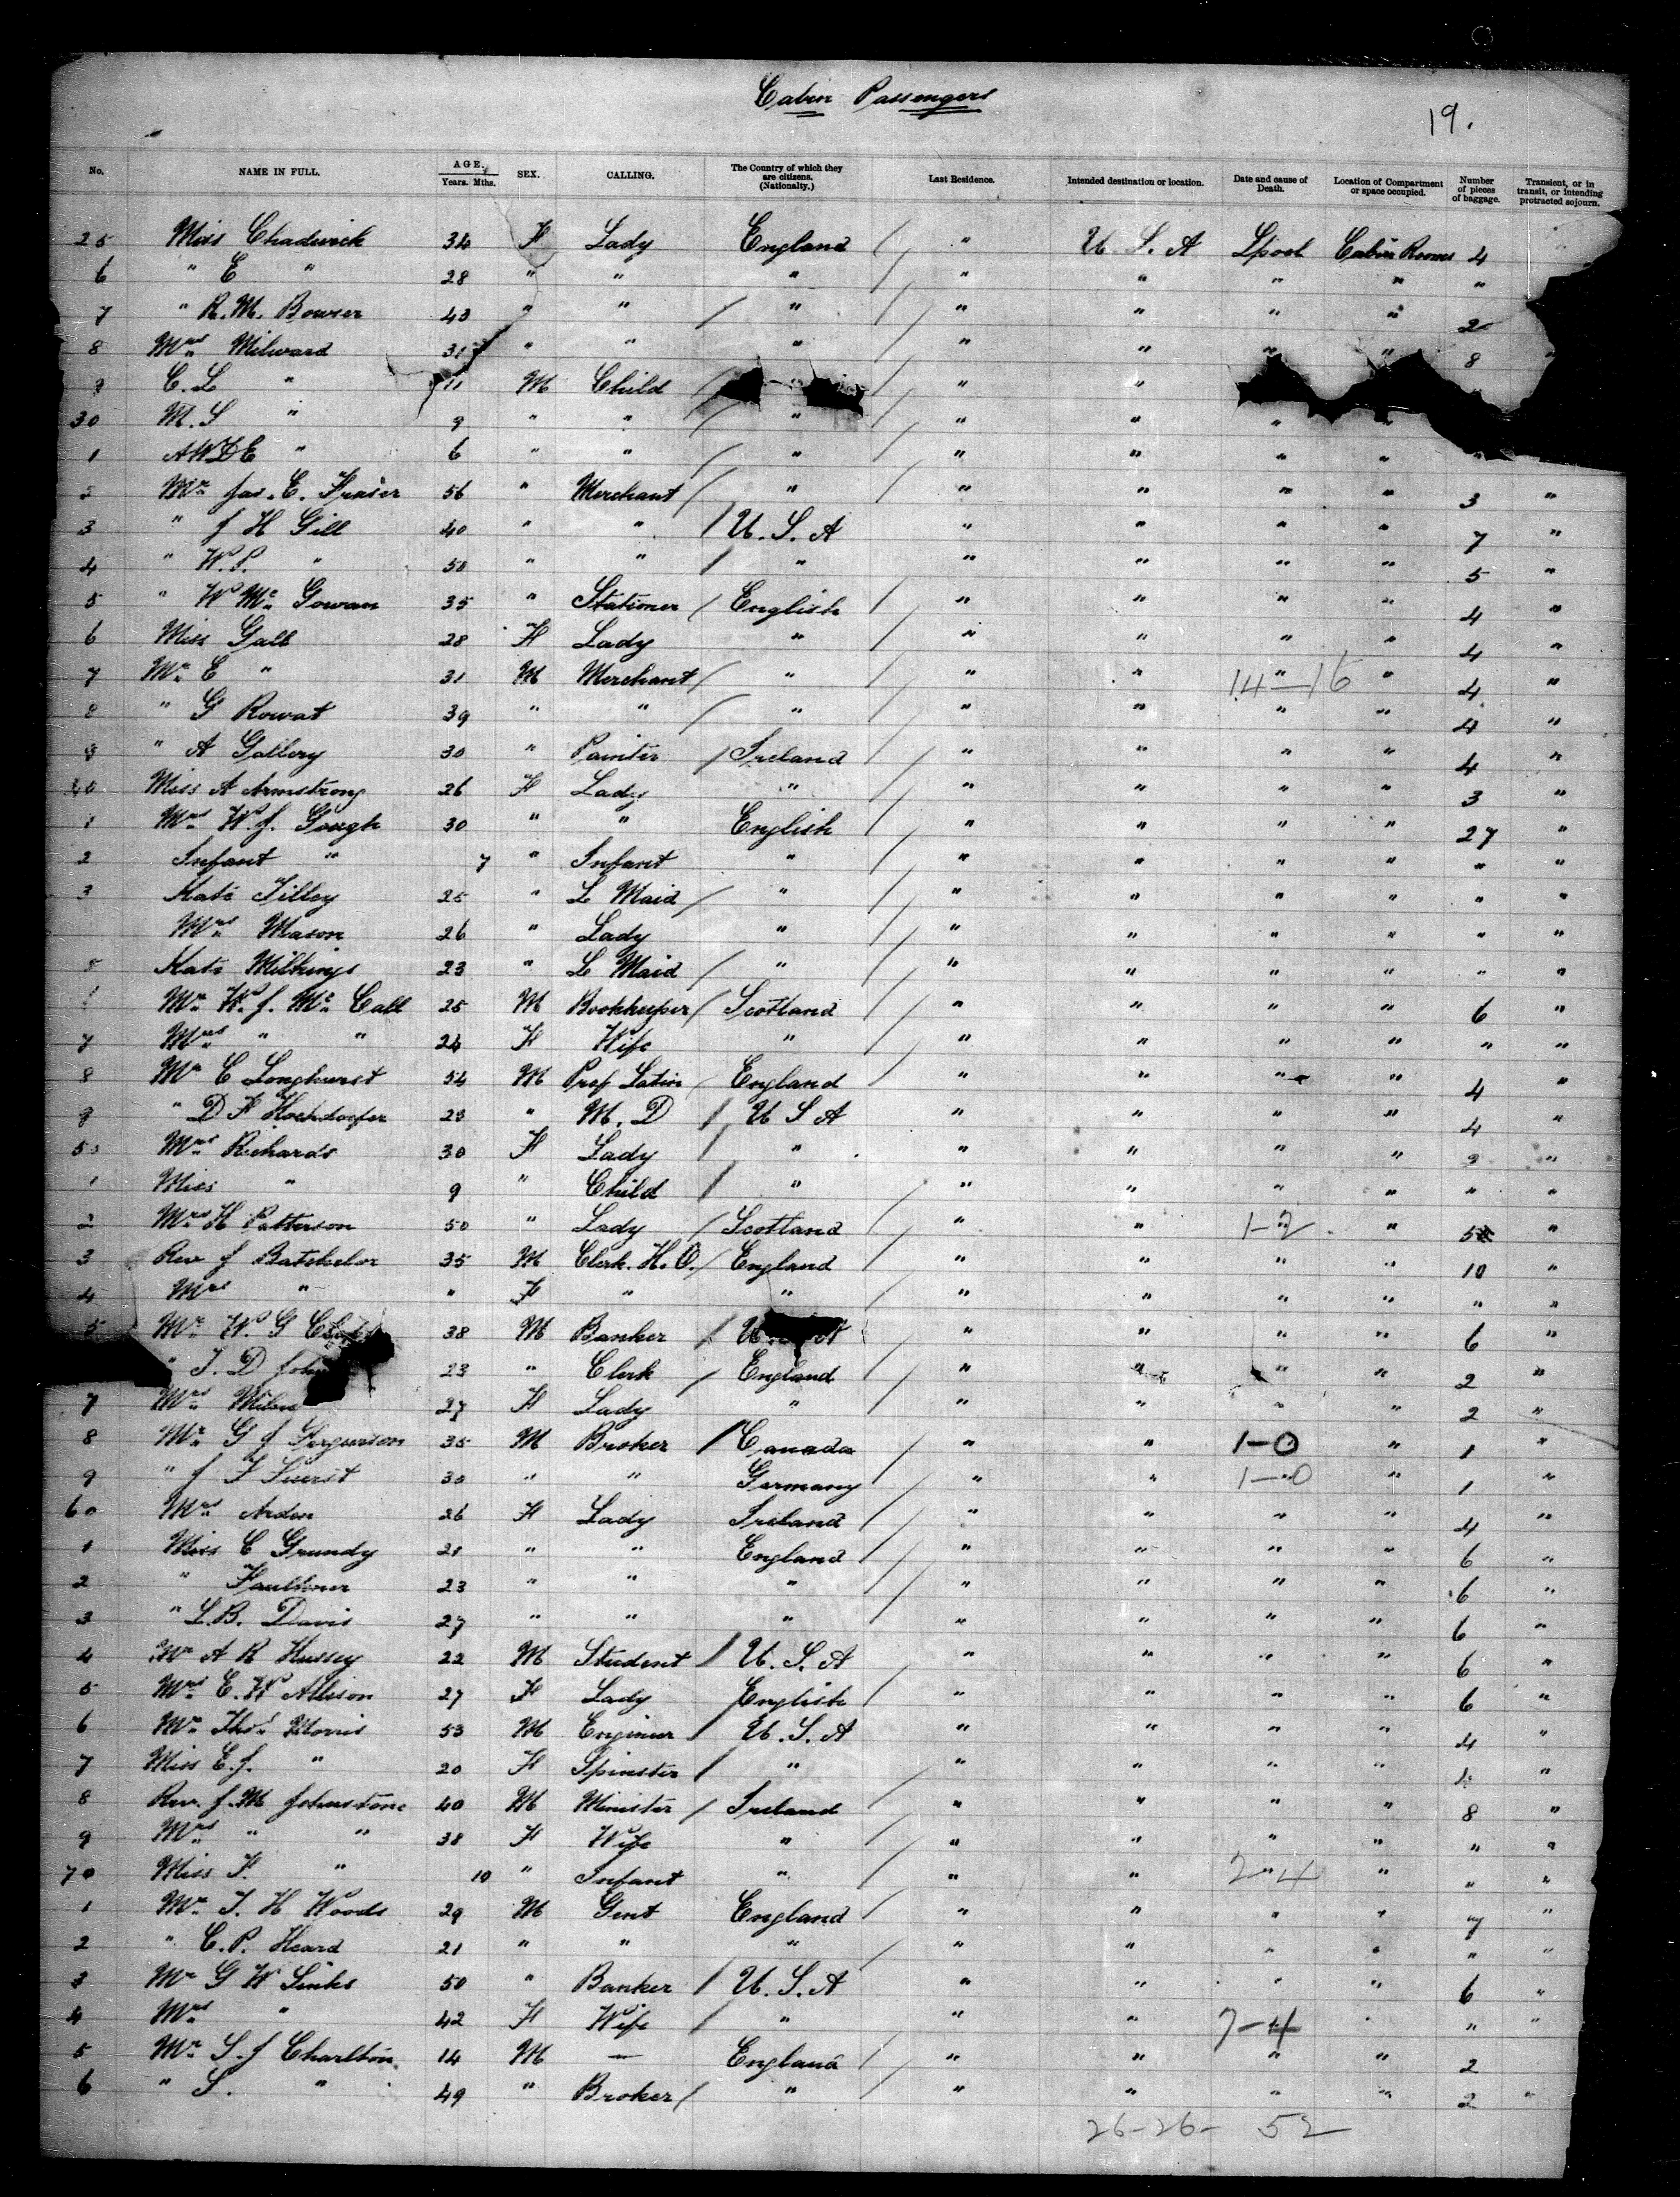 Cabin Passengers
19.
No. NAME IN FULL. AGE. Years. Mths. SEX. CALLING. The Country of which they are citizens. (Nationality.) Last Residence. Intended destination or location. Date and cause of Death. Location of Compartment or space occupied. Number of pieces of baggage. Transient, or in transit, or intending protracted sojourn.
25 Miss Chadwick 34 F Lady England " U. S. A Lpool Cabin Rooms 4
6 " E " 28 " " " " " " " "
7 " R. M. Bowser 43 " " " " " " " 2
8 Mrs Milward 31 " " " " " " " 8 "
9 C. L " 11 M Child " "
30 M. S " 9 " " " " " " "
1 AWDE " 6 " " " " " " " "
2 Mr Jas. E. Fraser 56 " Merchant " " " " " 3 "
3 " J H Gill 40 " " U. S. A " " " " 7 "
4 " W. S. " 50 " " " " " " " 5 "
5 " W Mc Gowan 35 " Stationer English " " " " 4 "
6 Miss Gall 28 F Lady " " " " " 4 "
7 Mr E " 31 M Merchant " " " " " 4 "
14-16
8 " G Rowat 39 " " " " " " " 4 "
9 " A Gallery 30 " Painter Ireland " " " " 4 "
40 Miss A Armstrong 26 F Lady " " " " " 3 "
1 Mrs W. J. Gough 30 " " English " " " " 27 "
2 Infant " 7 " Infant " " " " " " "
3 Kate Tilley 25 " L Maid " " " " " " "
Mrs Mason 26 " Lady " " " " " " "
5 Kate Milkings 23 " L Maid " " " " " " "
Mr W. J. Mc Call 25 M Bookkeeper Scotland " " " " 6 "
7 Mrs " " 24 F Wife " " " " " " "
8 Mr C Longhurst 54 M Prof Latin England " " " " 4 "
9 " D F Hochdorfer 23 " M. D U S A " " " " 4 "
50 Mrs Richards 30 F Lady " " " " " 9 "
1 Miss " 9 " Child " " " " " " "
2 Mrs H Patterson 50 " Lady Scotland " " 1-2 " 5 "
3 Rev J Batchelor 35 M Clerk. H. O. England " " " " 10 "
4 Mrs " " F " " " " " " " "
5 Mr W. G 38 M Banker U. A " " " " 6 "
" T. D John 23 " Clerk England " " " " 2 "
7 Mrs Milne 27 F Lady " " " " " 2 "
8 Mr G J Ferguson 35 M Broker Canada " " 1-0 " 1 "
9 " J F Fuerst 30 " " Germany " " 1-0 " 1 "
60 Mrs Arden 26 F Lady Ireland " " " " 4 "
1 Miss C Grundy 21 " " England " " " " 6 "
2 " Faulkner 23 " " " " " " " 6 "
3 " L. B. Davis 27 " " " " " " " 6 "
4 Mr A R Hussey 22 M Student U. S. A " " " " 6 "
5 Mrs E. W Allison 27 F Lady English " " " " 6 "
6 Mr Thos Morris 53 M Engineer U. S. A " " " " 4 "
7 Miss E. J. " 20 F Spinster " " " " " 1 "
8 Rev. J. M Johnstone 40 M Minister Ireland " " " " 8 "
9 Mrs " " 38 F Wife " " " " " " "
70 Miss F. " 10 " Infant " " " 2-4 " " "
1 Mr T. H Woods 29 M Gent England " " " " 7 "
2 " C. P. Heard 21 " " " " " " " " "
3 Mr G W Sinks 50 " Banker U. S. A " " " " 6 "
4 Mrs " 42 F Wife " " " 7-4 " "
5 Mr S. J Charlton 14 M — England " " " " 2
6 " S. " 49 " Broker " " " " " 2 "
26-26- 52